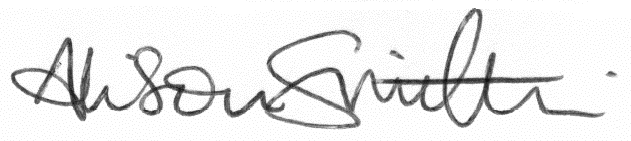 Alison Smith